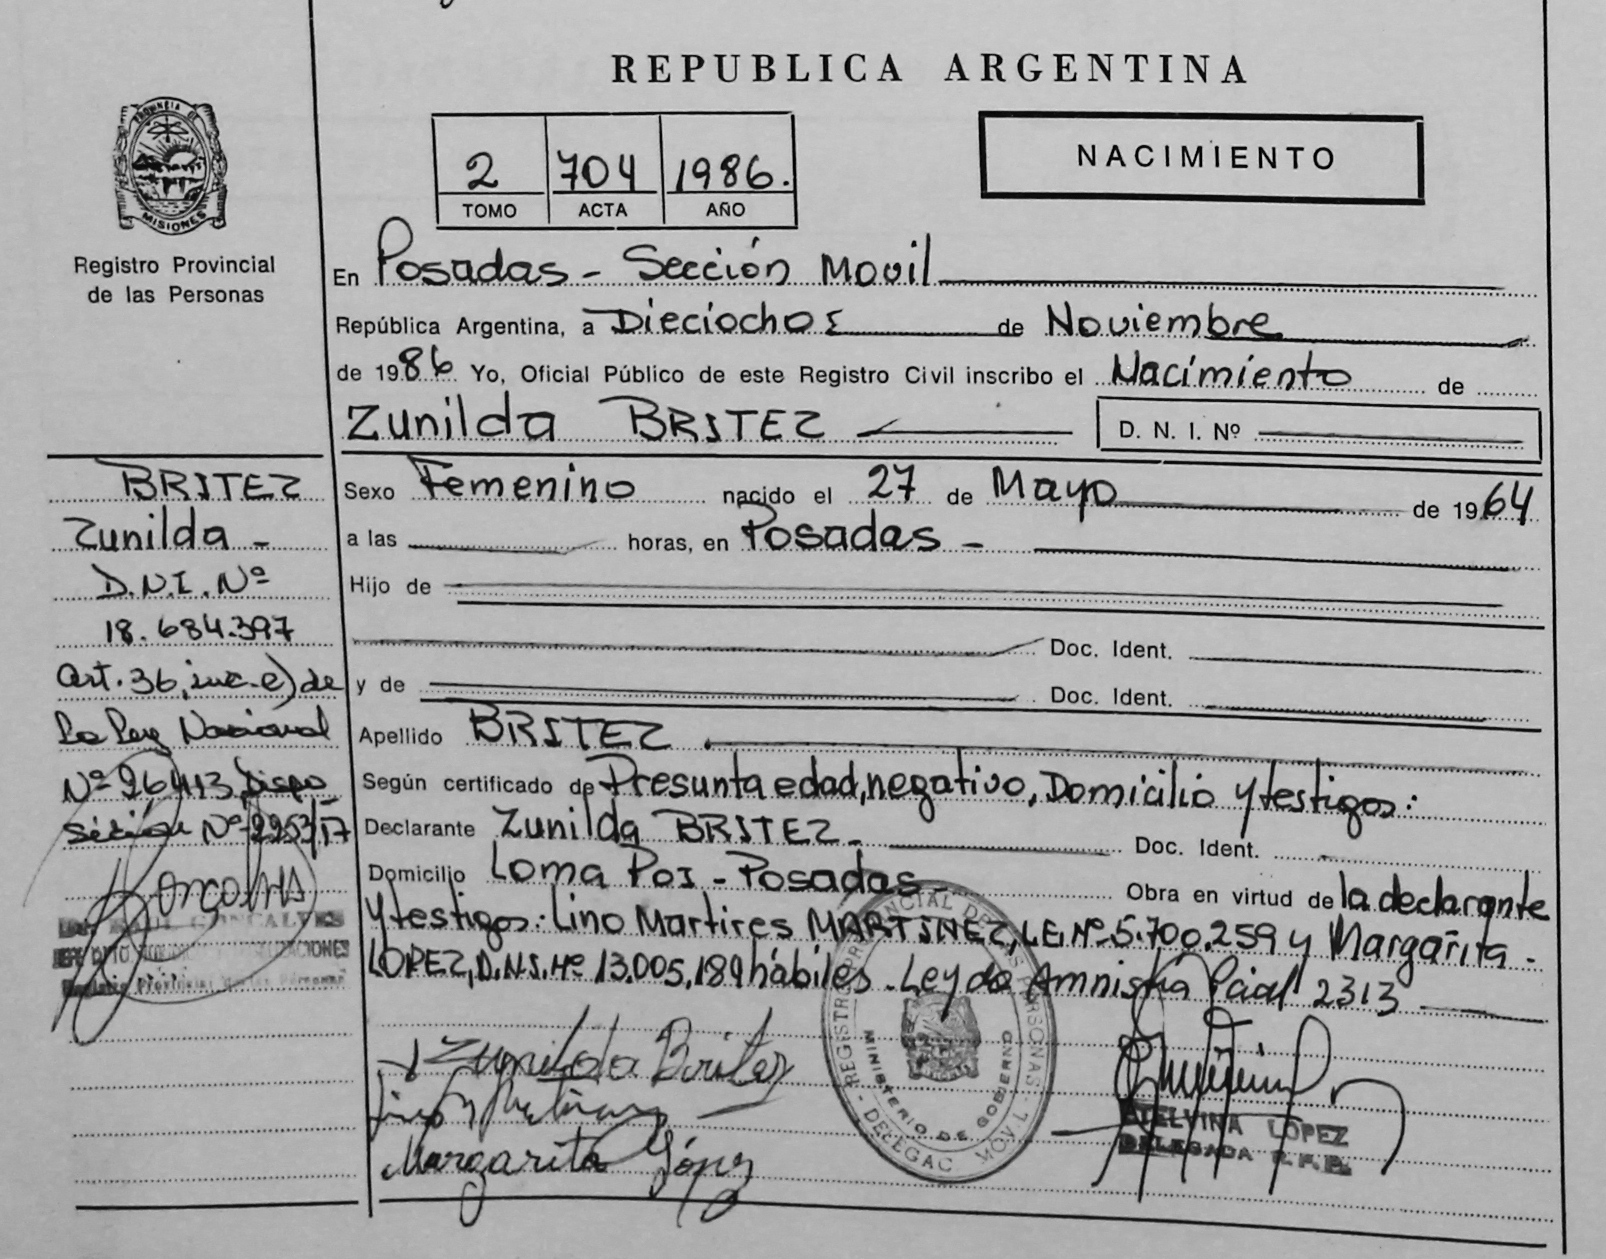 REPUBLICA ARGENTINA
PROVINCIA DE MISIONES
Registro Provincial
de las Personas
2 704 1986.
TOMO ACTA AÑO
NACIMIENTO
En Posadas - Sección Movil
República Argentina, a Dieciocho de Noviembre
de 1986 Yo, Oficial Público de este Registro Civil inscribo el Nacimiento de
Zunilda BRITEZ D. N. I. Nº
Sexo Femenino nacido el 27 de Mayo de 1964
a las horas, en Posadas -
Hijo de
Doc. Ident.
y de Doc. Ident.
Apellido BRITEZ
Según certificado de Presunta edad, negativo, Domicilio y testigos:
Declarante Zunilda BRITEZ - Doc. Ident.
Domicilio Loma Poi - Posadas - Obra en virtud de la declarante
y testigos: Lino Martires MARTINEZ, L.E. Nº 5.700.259 y Margarita -
LOPEZ, D.N.I. Nº 13.005.189 hábiles. Ley de Amnistía Pcial 2313
BRITEZ
Zunilda -
D.N.I. Nº
18.684.397
Art. 36, inc. e) de
la Ley Nacional
Nº 26413, Dispo
sición Nº 2253/17
GONCALVES
Registro Provincial de las Personas
Zunilda Britez
Margarita López
REGISTRO PROVINCIAL DE LAS PERSONAS - DELEGAC. MOVIL -
MINISTERIO DE GOBIERNO
ETELVINA LOPEZ
DELEGADA R.P.P.